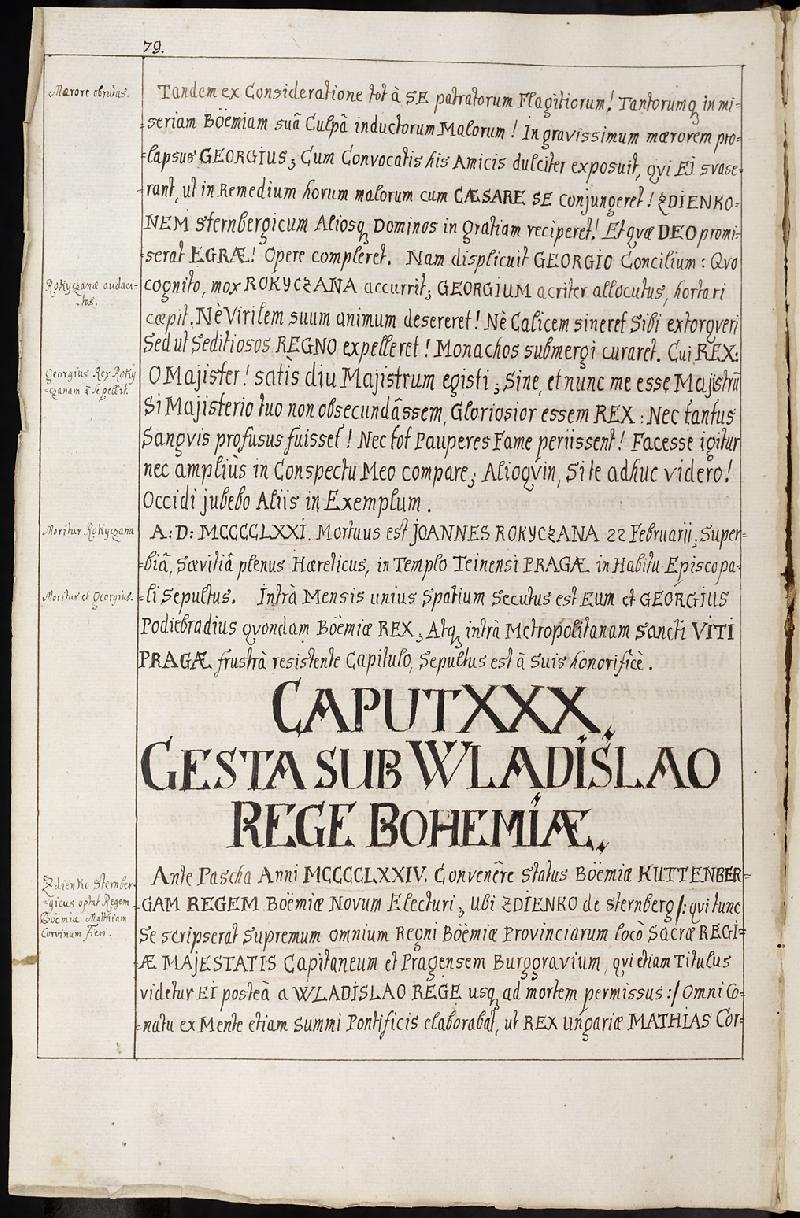 79.
Mærore obruitus.
Tandem ex Consideratione tot à SE patratorum Flagitiorum! Tantorumq, in mi-
-seriam Böemiam suâ Culpâ inductorum Malorum! In gravissimum mærorem pro-
-lapsus GEORGIUS; Cum Convocatis his Amicis dulciter exposuit, qvi EI svase-
-rant, ut in Remedium horum malorum cum CÆSARE SE conjungeret! ZDIENKO-
-NEM Sternbergicum Aliosq, Dominos in gratiam reciperet! Et qvæ DEO promi-
-serat EGRÆ! Opere compleret. Nam displicuit GEORGIO Concilium: Qvo
Rokyczanæ audaci-
-tas.
cognito, mox ROKYCZANA accurrit; GEORGIUM acriter allocutus, hortari
cæpit. Nè Virilem suum animum desereret! Nè Calicem sineret Sibi extorqveri
Sed ut Seditiosos REGNO expelleret! Monachos submergi curaret. Cui REX:
Georgius Rex Roky
-czanam à se pellit.
O Majister! satìs diu Majistrum egisti; Sine, et nunc me esse Majistrū
Si Majisterio tuo non obsecundâssem, Gloriosior essem REX: Nec tantus
Sangvis profusus fuisset! Nec tot Pauperes Fame periissent! Facesse igitur
nec ampliùs in Conspectu Meo compare; Alioqvin, Si te adhuc videro!
Occidi jubebo Aliis in Exemplum.
Moritur Rokyczana
A: D: MCCCCLXXI. Mortuus est JOANNES ROKYCZANA 22 Februarij, Super-
-biâ, Sævitiâ plenus Hæreticus, in Templo Teinensi PRAGÆ in Habitu Episcopa-
Moritur et Georgius.
-li Sepultus. Intrà Mensis unius Spatium Secutus est Eum et GEORGIUS
Podiebradius qvondam Böemiæ REX; Atq, intrà Metropolitanam Sancti VITI
PRAGÆ frustrà resistente Capitulo, Sepultus est à Suis honorificè.
CAPUT XXX.
GESTA SUB WLADISLAO
REGE BOHEMIÆ.
Ante Pascha Anni MCCCCLXXIV. Convenêre Status Böemiæ KUTTENBER-
Zdienko Sternber-
-gicus optat Regem
Böemiæ Mathiam
Corvinum Fieri.
GAM REGEM Böemiæ Novum Electuri; Ubi ZDIENKO de Sternberg /: qvi tunc
Se scripserat Supremum omnium Regni Böemiæ Provinciarum locô Sacræ REGI-
Æ MAJESTATIS Capitaneum et Pragensem Burggravium, qvi etiam Titulus
videtur EI posteà a WLADISLAO REGE usq, ad mortem permissus :/ Omni Co-
-natu ex Mente etiam Summi Pontificis elaborabat, ut REX Ungariæ MATHIAS Cor-